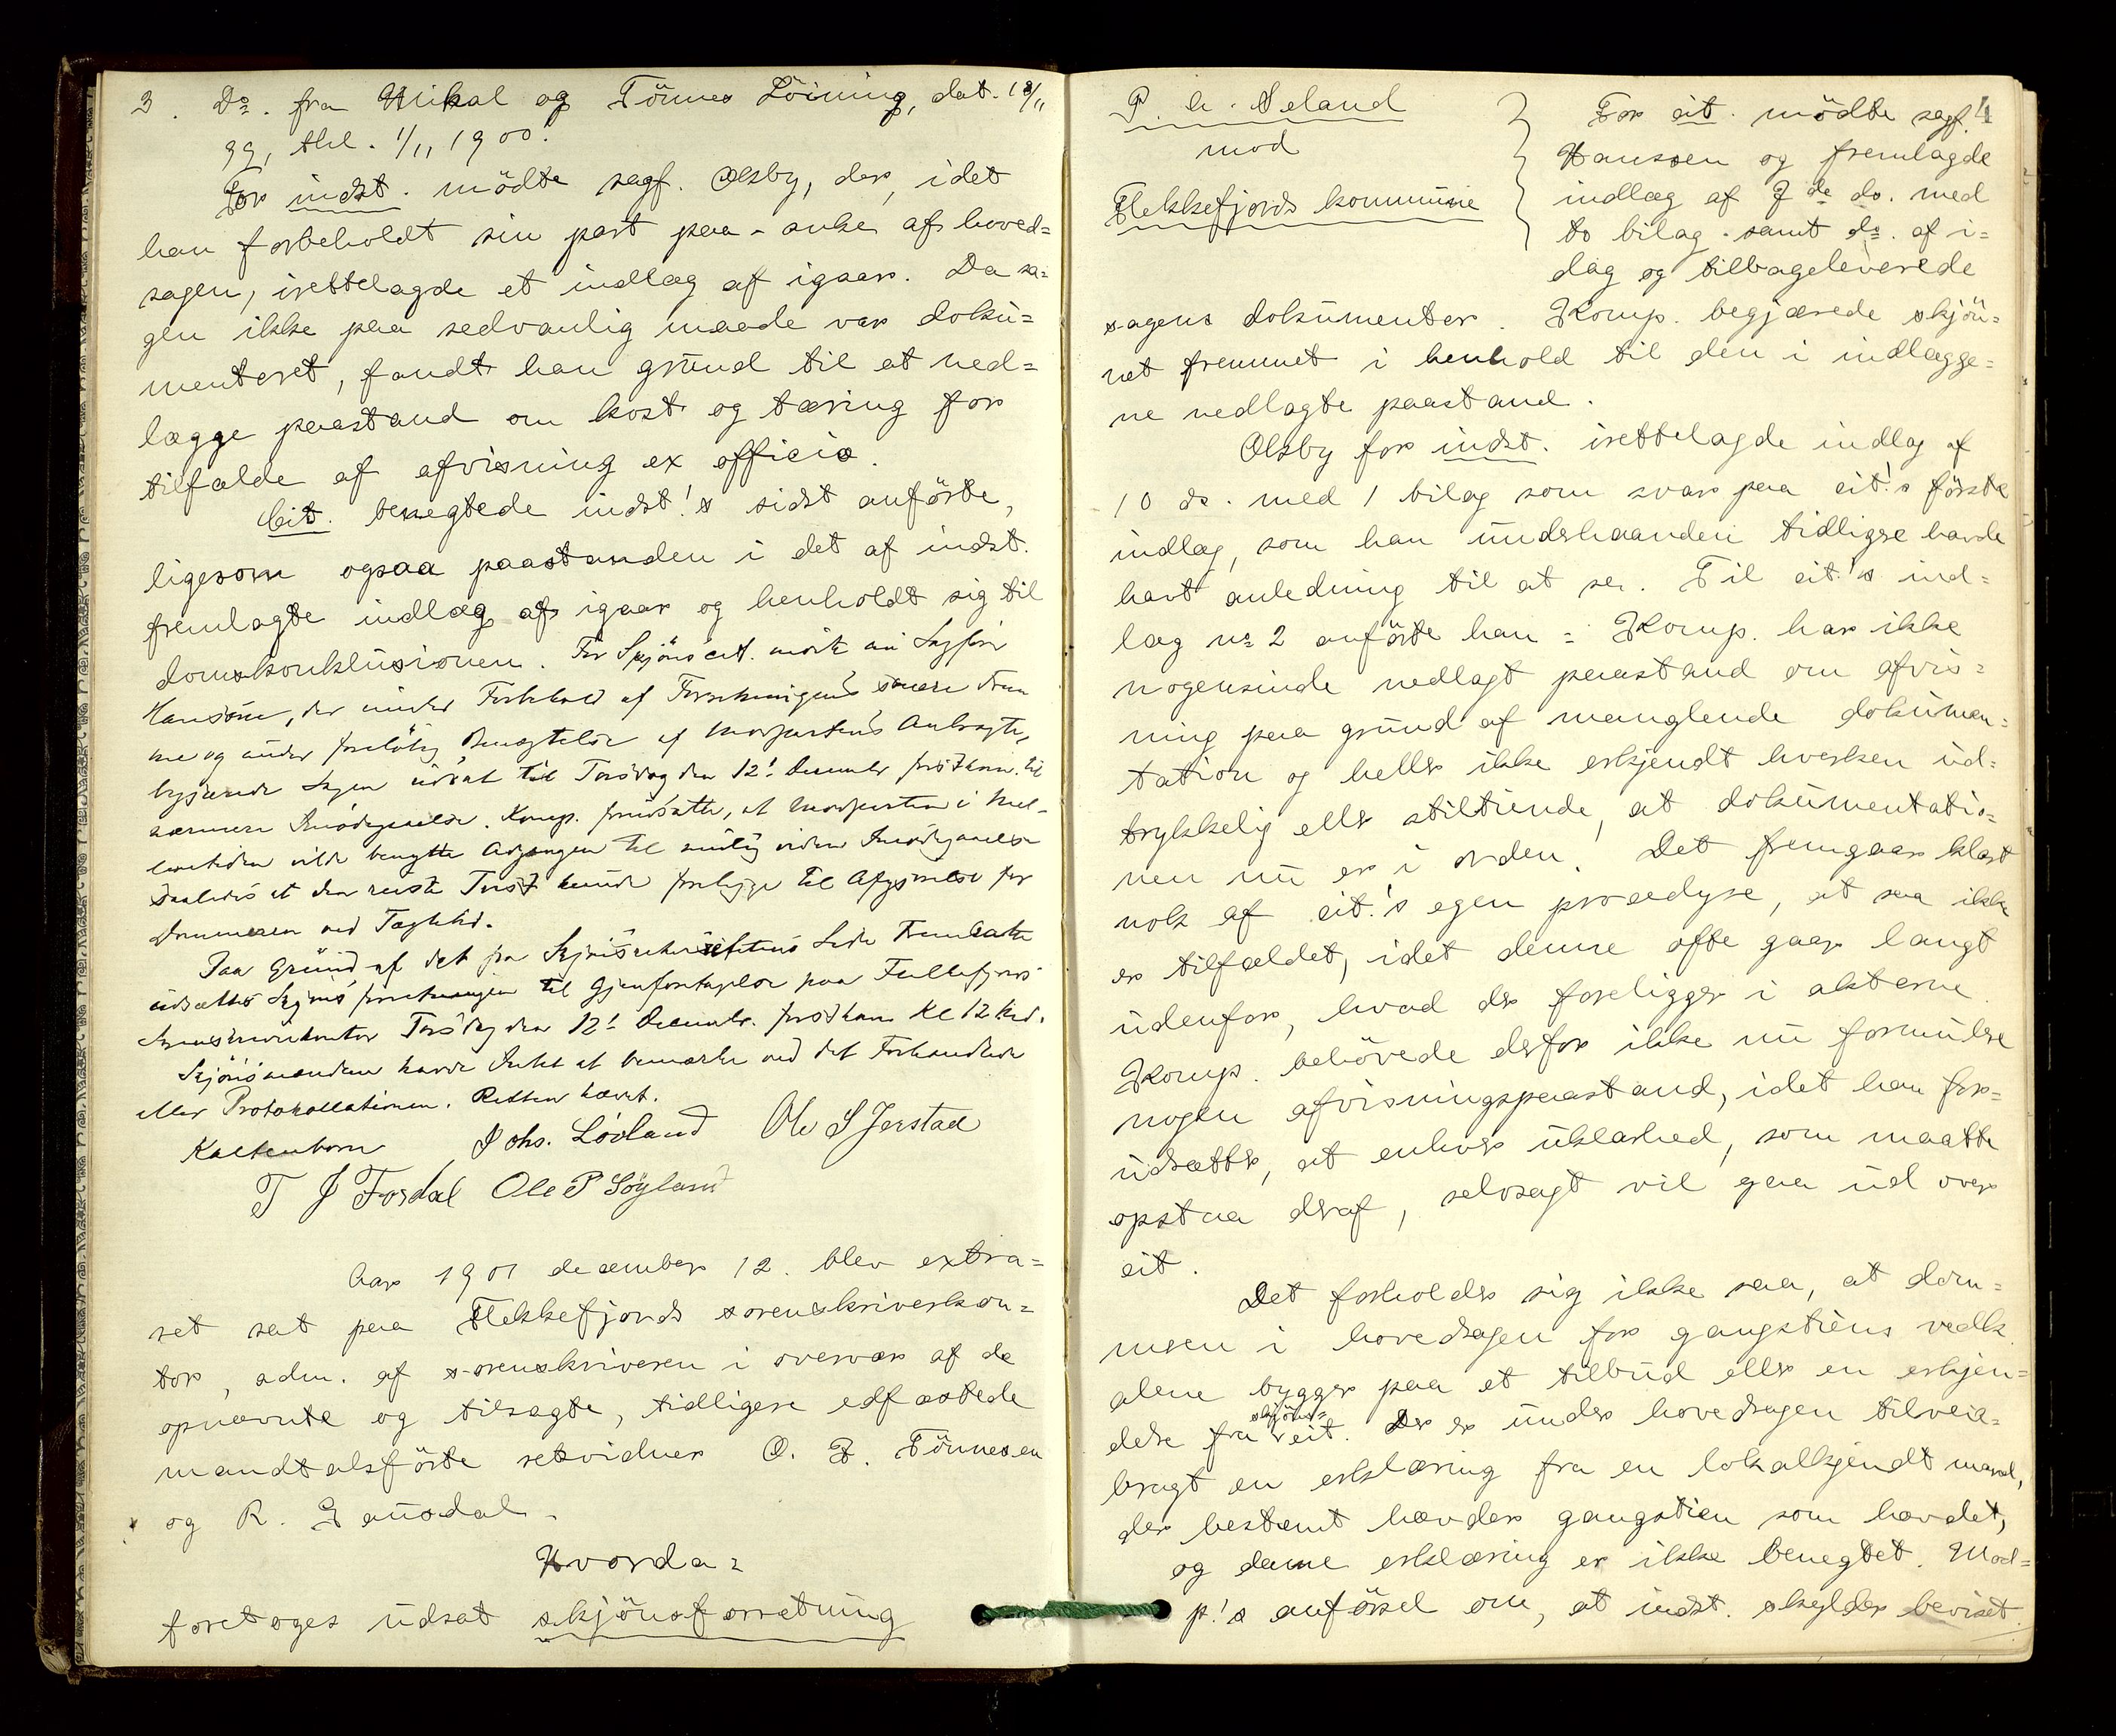 3. Do. fra Mikal og Tönnes Löining, dat. 18/11
99, thl. 1/11 1900.
For indst. mödte sagf. Olsby, der, idet
han forbeholdt sin part paa-anke af hoved=
sagen, irettelagde et indlæg af igaar. Da sa=
gen ikke paa sedvanlig maade var doku=
menteret, fandt han grund til at ned=
lægge paastand om kost og tæring for
tilfælde af afvisning ex officio.
Cit. benegtede indst!s sidst anförte,
ligesom ogsaa paastanden i det af indst.
fremlagte indlæg af igaar og henholdt sig til
domskonklusionen. For Skjöns cit. mödte nu Sagförer
Hanssen, der under Forbehold af Forretningens senere Frem
me og under foreløbig Benægtelse af Modpartens Anbragte,
begjærede Sagen udsat til Torsdag den 12! December förstkom. til
nærmere Imödegaaelse. Komp. forudsatte, at Modparten i Mel-
lemtiden vilde benytte Adgangen til mulig videre Imödegaaelse
saaledes at den næste Termin kunde foreligge til Afgjørelse for
Dommeren ved Tægtetid.
Paa Grund af det fra Skjöns Side Fremsatte
udsættes Skjönsforretningen til Gjenforetagelse paa Flekkefjords
Sorenskriverkontor Torsdag den 12! Decembr. førstkom Kl 12 Md.
Skjönsmændene havde Intet at bemærke ved det Forhandlede
eller Protokollationen. Retten hævet.
Kaltenborn Johs. Lövland Ole S Jerstad
T J Fosdal Ole P Söyland
Aar 1901 december 12. blev extra=
ret sat paa Flekkefjords sorenskriverkon=
tor, adm. af sorenskriveren i overvær af de
opnævnte og tilsagte, tidligere edfæstede
mandtalsförte retsvidner O. F. Tönnesen
og R. Gausdal.
Hvorda=
foretoges udsat skjönsforretning
4
P. A. Seland
mod
Flekkefjords kommune
For cit. mödte sagf.
Hanssen og fremlagde
indlæg af 7de ds. med
to bilag samt do. af i=
dag og tilbageleverede
sagens dokumenter. Komp. begjærede skjön=
net fremmet i henhold til den i indlægge=
ne nedlagte paastand.
Olsby for indst. irettelagde indlæg af
10 ds. med 1 bilag som svar paa cit!s förste
indlæg, som han underhaanden tidligere havde
havt anledning til at se. Til cit!s ind=
læg no 2 anförte han: Komp. har ikke
nogensinde nedlagt paastand om afvis=
ning paa grund af manglende dokumen=
tation og heller ikke erkjendt hverken ud=
trykkelig eller stiltiende, at dokumentatio=
nen nu er i orden. Det fremgaar klart
nok af cit.'s egen procedyre, at saa ikke
er tilfældet, idet denne ofte gaar langt
udenfor, hvad der foreligger i akterne.
Komp. behövede derfor ikke nu formulere
nogen afvisningspaastand, idet han for=
udsætter, at enhver uklarhed, som maatte
opstaa deraf, selvsagt vil gaa ud over
cit.
Det forholder sig ikke saa, at dom=
men i hovedsagen for gangstiens vedk.
alene bygger paa et tilbud eller en erkjen=
delse fra skjöns= cit. Der er under hovedsagen tilveie=
bragt en erklæring fra en lokalkjendt mand,
der bestemt hævder gangstien som hævdet,
og denne erklæring er ikke benegtet. Mod=
p!s anförsel om, at indst. skylder beviset